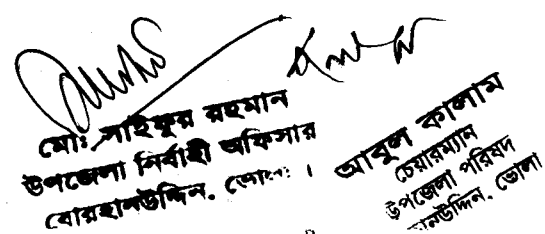 মোঃ সাইফুর রহমান
উপজেলা নির্বাহী অফিসার
বোরহানউদ্দিন, ভোলা ।
আবুল কালাম
চেয়ারম্যান
উপজেলা পরিষদ
হানউদ্দিন, ভোলা